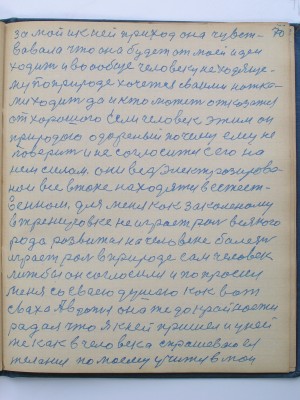 70
за мой и к ней приход она чувст-
вовала что она будет от моей идеи
ходит и вообще человеку находяще-
му по природе хочется своими ножка-
ми ходит да и кто может отказатся
от хорошого Если человек этим он
природою одареный почему ему не
поверит и не согласится с его на
нем силам, они ведь электрозирова-
ной все в токе находятся в естест-
венном, для меня как закаленому
в тренеровке не играет рол всякого
рода розвитая на человеке болезнь
играет рол в природе сам человек
лишбы он согласился и попросил
меня со своею душою как вот
сваха Авдотья она те до крайности
радая что я к ней пришел и у ней
не как в человека спрашевается
желания по моему учится в мои